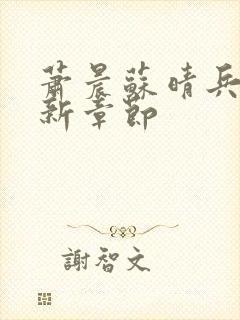 蕭晨蘇晴兵
新章節
謝智文